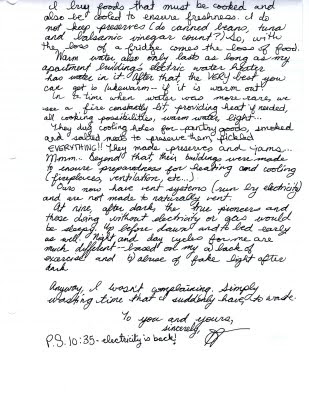 I buy foods that must be cooked and
also be cooled to ensure freshness. I do
not keep preserves (do canned beans, tuna
and balsamic vinegar count?) So, with
the loss of a fridge comes the loss of food.
Warm water also only lasts as long as my
apartment building's electric water heater
has water in it. After that, the VERY best you
can get is lukewarm - if it is warm out.
In a time when water was more rare, we
see a fire constantly lit, providing heat if needed,
all cooking possibilities, warm water, light...
They dug cooling holes for pantry goods, smoked
and salted meats to preserve them, pickled
EVERYTHING!! They made preserves and jams...
Mmm.. Beyond that, their buildings were made
to ensure preparedness for heating and cooling
(fireplaces, ventilation, etc...)
Ours now have vent systems (run by electricity)
and are not made to naturally vent.
At nine, after dark, the true pioneers and
those doing without electricity or gas would
be sleepy. Up before dawn and to bed early
as well. Night and day cycles for me are
much different - based on my a) lack of
exercise and b) abuse of fake light after
dark.
Anyway, I wasn't complaining, simply
washing time that I suddenly have to waste.
To you and yours,
sincerely,
P.S. 10:35 - electricity is back!